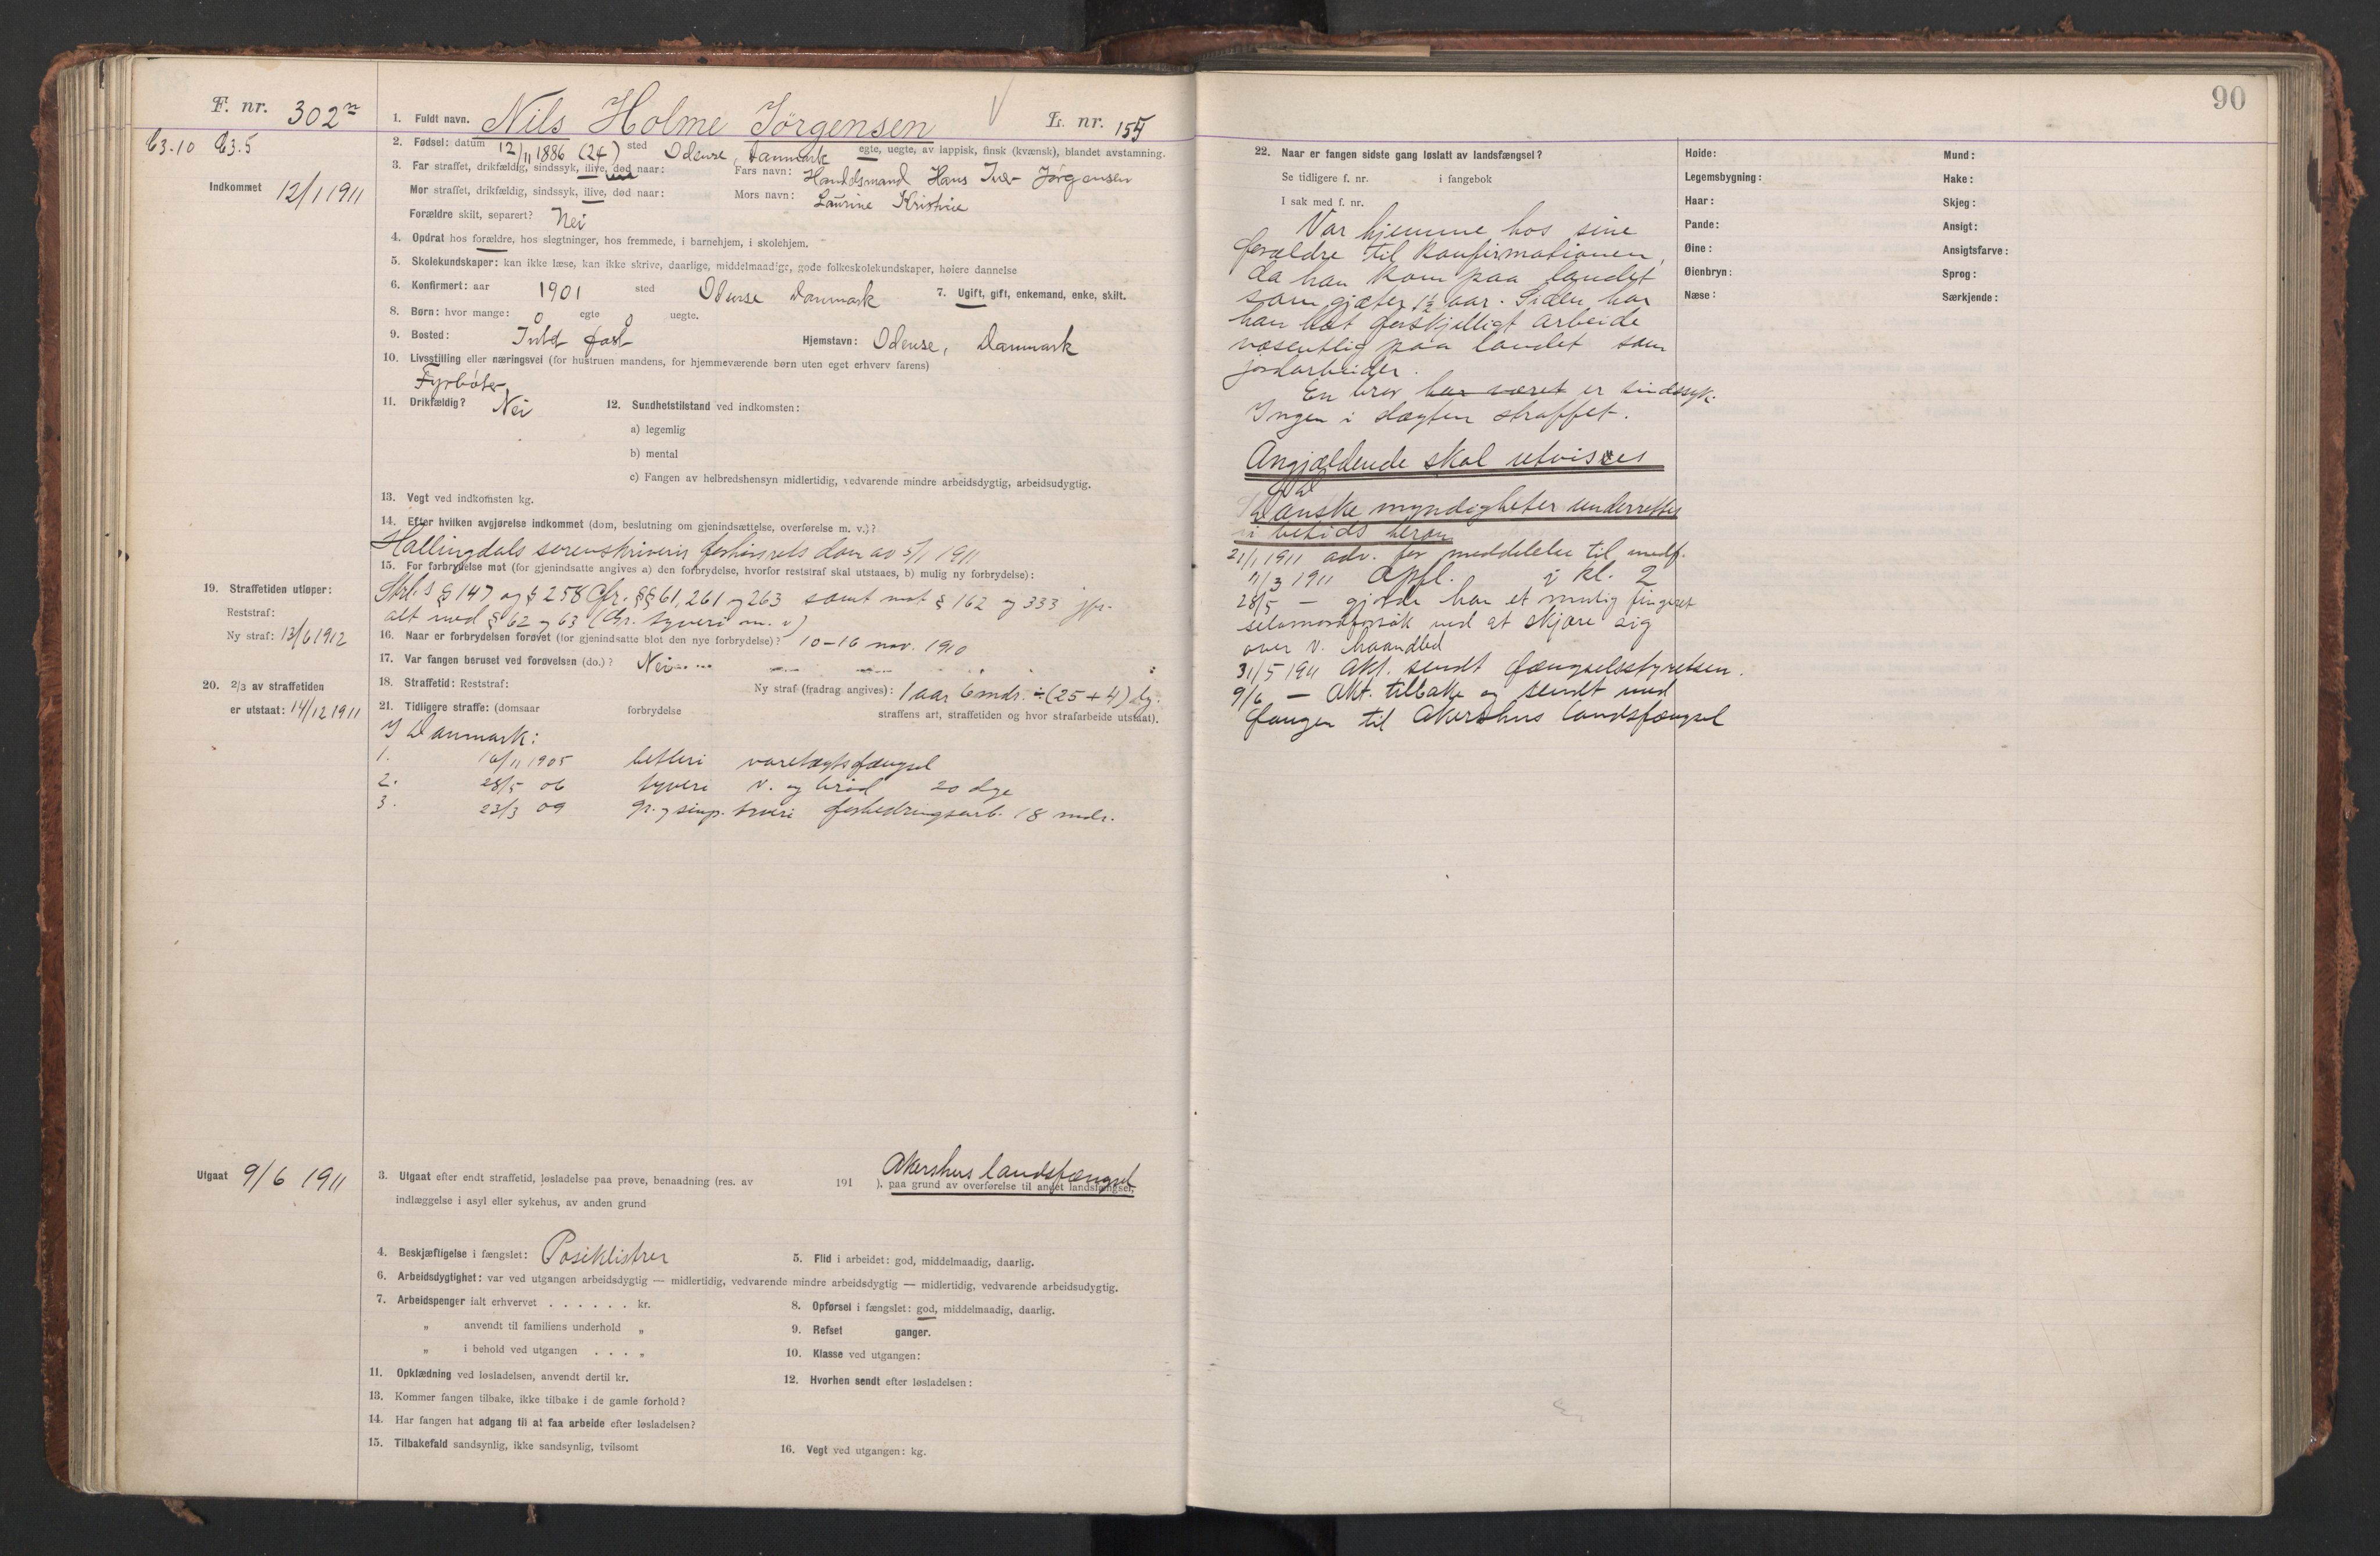 F. nr. 302
1. Fuldt navn. Nils Holme Jörgensen L. nr. 155
C3.10 C3.5
2. Fødsel: datum 12/11 1886 (24) sted Odense, Danmark egte, uegte, av lappisk, finsk (kvænsk), blandet avstamning.
Indkommet 12/1 1911
3. Far straffet, drikfældig, sindssyk, ilive, død naar: Fars navn: Handelsmand Hans Iver Jörgensen
Mor straffet, drikfældig, sindssyk, ilive, død naar: Mors navn: Laurine Kristine
Forældre skilt, separert? Nei
4. Opdrat hos forældre, hos slegtninger, hos fremmede, i barnehjem, i skolehjem.
5. Skolekundskaper: kan ikke læse, kan ikke skrive, daarlige, middelmaadige, gode folkeskolekundskaper, høiere dannelse
6. Konfirmert: aar 1901 sted Odense Danmark 7. Ugift, gift, enkemand, enke, skilt.
8. Børn: hvor mange: 0 egte 0 uegte.
9. Bosted: Intet fast Hjemstavn: Odense, Danmark
10. Livsstilling eller næringsvei (for hustruen mandens, for hjemmeværende børn uten eget erhverv farens)
Fyrbøter
11. Drikfældig? Nei 12. Sundhetstilstand ved indkomsten:
a) legemlig
b) mental
c) Fangen av helbredshensyn midlertidig, vedvarende mindre arbeidsdygtig, arbeidsudygtig.
13. Vegt ved indkomsten kg.
14. Efter hvilken avgjørelse indkommet (dom, beslutning om gjenindsættelse, overførelse m. v.)?
Hallingdals sorenskriveris forhørsrets dom av 5/1 1911
15. For forbrydelse mot (for gjenindsatte angives a) den forbrydelse, hvorfor reststraf skal utstaaes, b) mulig ny forbrydelse):
Strl.s § 147 og § 258 cfr. §§ 61, 261 og 263 samt mot § 162 og 333 jfr.
alt med § 62 og 63 (Gr. tyveri m. v)
19. Straffetiden utløper:
Reststraf:
Ny straf: 13/6 1912
16. Naar er forbrydelsen forøvet (for gjenindsatte blot den nye forbrydelse)? 10-16 nov. 1910
17. Var fangen beruset ved forøvelsen (do.)? Nei
18. Straffetid: Reststraf: Ny straf (fradrag angives): 1 aar 6 mdr. ÷ (25 + 4) dg.
20. 2/3 av straffetiden
er utstaat: 14/12 1911
21. Tidligere straffe: (domsaar forbrydelse straffens art, straffetiden og hvor strafarbeide utstaat).
I Danmark:
1. 16/11 1905 betleri varetægtsfængsel
2. 28/5 06 tyveri v. og brød 20 dge
3. 23/3 09 gr. og simp. tyveri forbedringsarb. 18 mdr.
Utgaat 9/6 1911
3. Utgaat efter endt straffetid, løsladelse paa prøve, benaadning (res. av 191 ), paa grund av overførelse til andet landsfængsel, Akershus landsfængsel
indlæggelse i asyl eller sykehus, av anden grund
4. Beskjæftigelse i fængslet: Poseklistrer 5. Flid i arbeidet: god, middelmaadig, daarlig.
6. Arbeidsdygtighet: var ved utgangen arbeidsdygtig — midlertidig, vedvarende mindre arbeidsdygtig — midlertidig, vedvarende arbeidsudygtig.
7. Arbeidspenger ialt erhvervet . . . . . . kr. 8. Opførsel i fængslet: god, middelmaadig, daarlig.
„ anvendt til familiens underhold „ 9. Refset ganger.
„ i behold ved utgangen . . . „ 10. Klasse ved utgangen:
11. Opklædning ved løsladelsen, anvendt dertil kr. 12. Hvorhen sendt efter løsladelsen:
13. Kommer fangen tilbake, ikke tilbake i de gamle forhold?
14. Har fangen hat adgang til at faa arbeide efter løsladelsen?
15. Tilbakefald sandsynlig, ikke sandsynlig, tvilsomt 16. Vegt ved utgangen: kg.
90
22. Naar er fangen sidste gang løslatt av landsfængsel?
Se tidligere f. nr. i fangebok
I sak med f. nr.
Var hjemme hos sine
forældre til konfirmationen,
da han kom paa landet
som gjæter 1½ aar. Siden har
han hat forskjelligt arbeide
væsentlig paa landet som
jordarbeider.
En bror har været er sindssyk.
Ingen i slægten straffet.
Angjældende skal utvises
Danske myndigheter underrettes
i betids herom
21/1 1911 adv. for meddelelse til medf.
1/3 1911 Opfl. i kl. 2
28/5 — gjorde han et mulig fingeret
selvmordforsøk ved at skjære sig
over v. haandled
31/5 1911 Akt. sendt fængselsstyrelsen.
9/6 — Akt. tilbake og sendt med
fangen til Akershus landsfængsel
Høide: Mund:
Legemsbygning: Hake:
Haar: Skjeg:
Pande: Ansigt:
Øine: Ansigtsfarve:
Øienbryn: Sprog:
Næse: Særkjende: